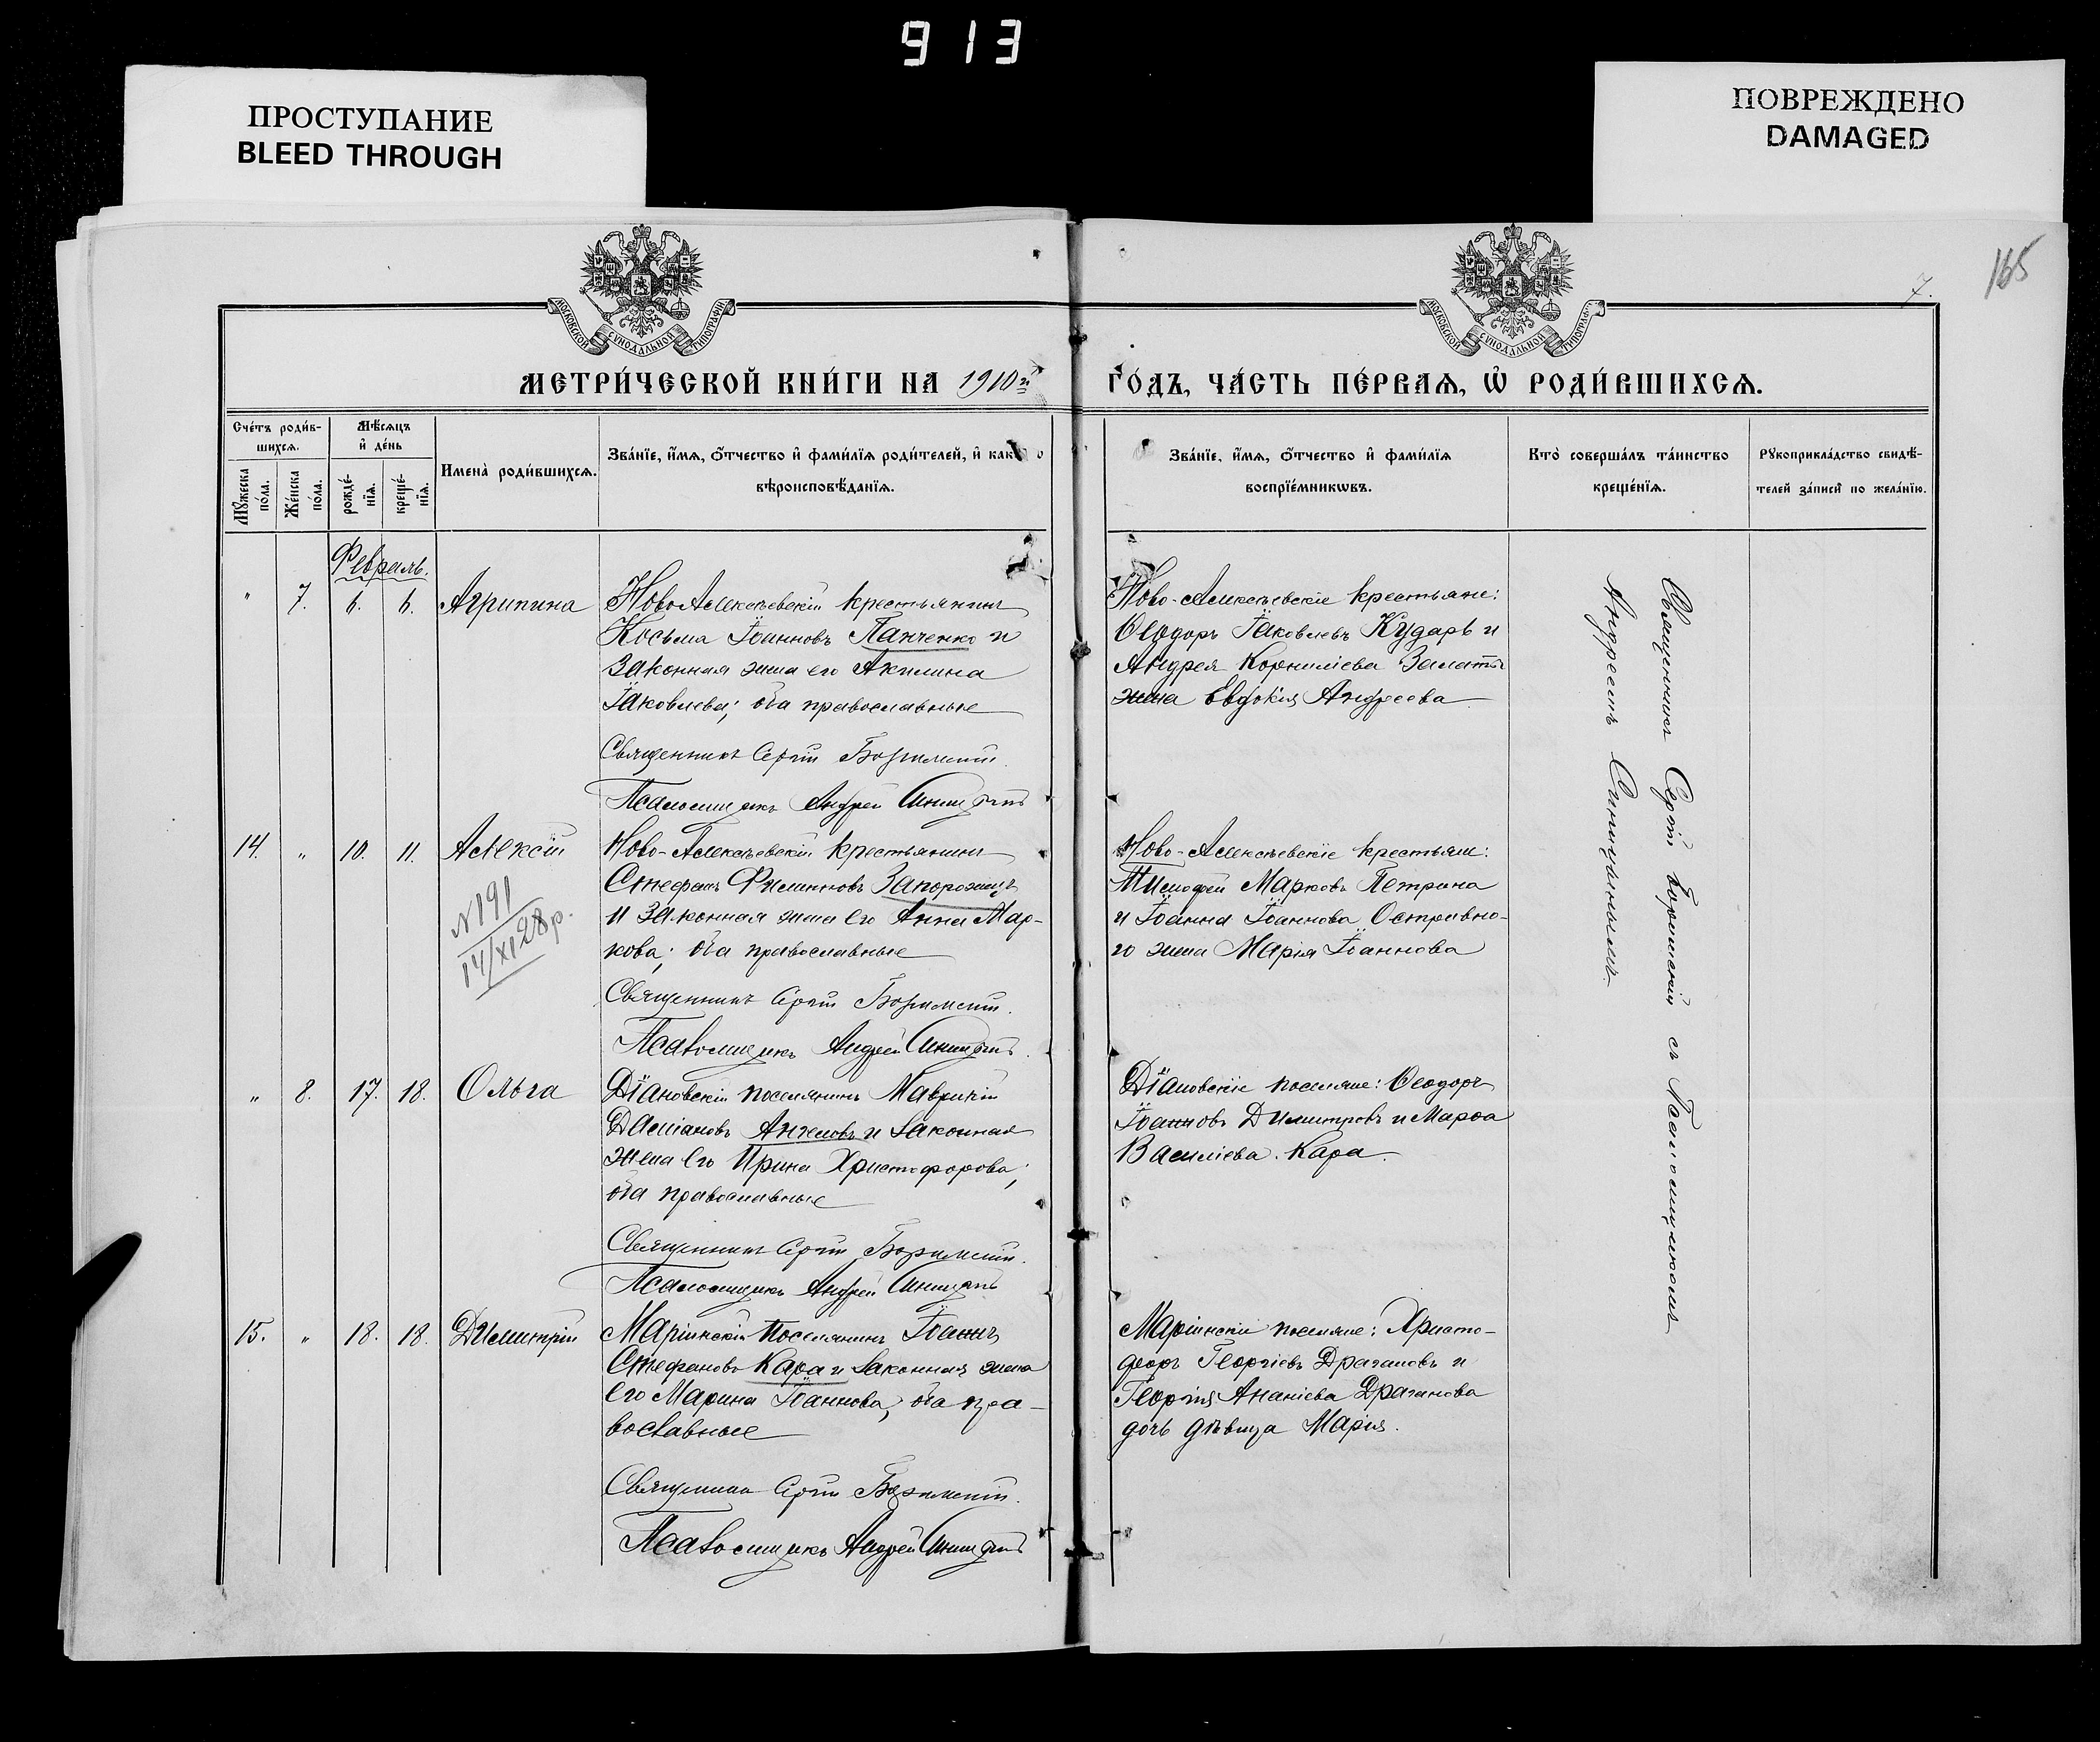 913
ПРОСТУПАНИЕ
BLEED THROUGH
ПОВРЕЖДЕНО
DAMAGED
165
7.
МОСКОВСКОЙ СѴНОДАЛЬНОЙ ТИПОГРАФІИ
МОСКОВСКОЙ СѴНОДАЛЬНОЙ ТИПОГРАФІИ
МЕТРИ́ЧЕСКОЙ КНИ́ГИ НА 1910й ГО́ДЪ, ЧА́СТЬ ПЕ́РВАѦ, Ѽ РОДИ́ВШИХСѦ.
Сче́тъ роди́в-
шихсѧ.
Мꙋ́жеска по́ла.
Же́нска по́ла.
Мѣ́сѧцъ
и҆ де́нь
рожде́-
нїѧ.
креще́-
нїѧ.
Имена̀ роди́вшихсѧ.
Зва́нїе, и҆́мѧ, ѻ҆́тчество и҆ фами́лїѧ роди́телей, и҆ како
вѣроисповѣ́данїѧ.
Зва́нїе, и҆́мѧ, ѻ҆́тчество и҆ фами́лїѧ
воспрїе́мникѡвъ.
Кто̀ соверша́лъ та́инство
креще́нїѧ.
Рꙋкоприкла́дство свидѣ́-
телей за́писи по жела́нїю.
Февраль.
" 7. 6. 6. Агрипина
НовоАлексѣевскій крестьянинъ
Косьма Іоанновъ Панченко и
законная жена его Акилина
Іаковлева; оба православные
Священникъ Сергій
Псаломщикъ Андрей Синицынъ
Ново-Алексѣевскіе крестьяне:
Ѳеодоръ Іаковлевъ Кударь и
Андрея Корниліева
жена Евдокія Андреева
14. " 10. 11. Алексій
N 191
14/XI 28 р.
Ново-Алексѣевскій крестьянинъ
Стефанъ Филипповъ Запорожецъ
и законная жена его Анна Мар-
кова; оба православные
Священникъ Сергій
Псаломщикъ Андрей Синицынъ
Ново-Алексѣевскіе крестьяне:
Тимофей Марковъ Петрина
и Іоанна Іоаннова Остривно-
го жена Марія Іоаннова
" 8. 17. 18. Ольга
Діановскій поселянинъ Маврикій
Даміановъ Ангеловъ и законная
жена его Ирина Христофорова;
оба православные
Священникъ Сергій
Псаломщикъ Андрей Синицынъ
Діановскіе поселяне: Ѳеодоръ
Іоанновъ Димитровъ и Марѳа
Василіева Кара.
15. " 18. 18. Димитрій
Маріинскій поселянинъ Іоаннъ
Стефановъ Кара и законная жена
его Марина Іоаннова, оба пра-
вославные
Священникъ Сергій
Псаломщикъ Андрей Синицынъ
Маріинскіе поселяне: Христо-
форъ Георгіевъ Драгановъ и
Георгія Ананіева Драганова
дочь дѣвица Марія.
Священникъ Сергій съ Псаломщикомъ
Андреемъ Синицынымъ.